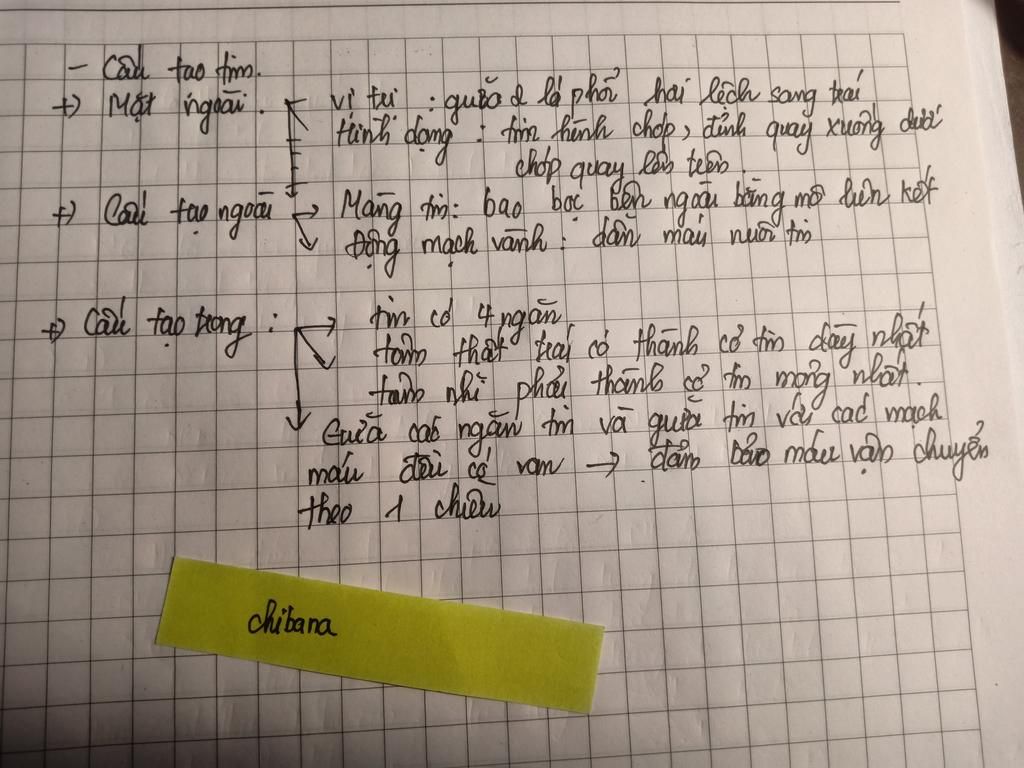 - Cấu tạo tim.
+) Mặt ngoài. vị trí : giữa 2 lá phổi hơi lệch sang trái
hình dạng : tim hình chóp, đỉnh quay xuống dưới
chóp quay lên trên
+) Cấu tạo ngoài → Màng tim: bao bọc bên ngoài bằng mô liên kết
Động mạch vành : dẫn máu nuôi tim
+) Cấu tạo trong : → tim có 4 ngăn
tâm thất trái có thành cơ tim dày nhất
tâm nhĩ phải thành cơ tim mỏng nhất.
Giữa các ngăn tim và giữa tim với các mạch
máu đều có van → đảm bảo máu vận chuyển
theo 1 chiều
chibana